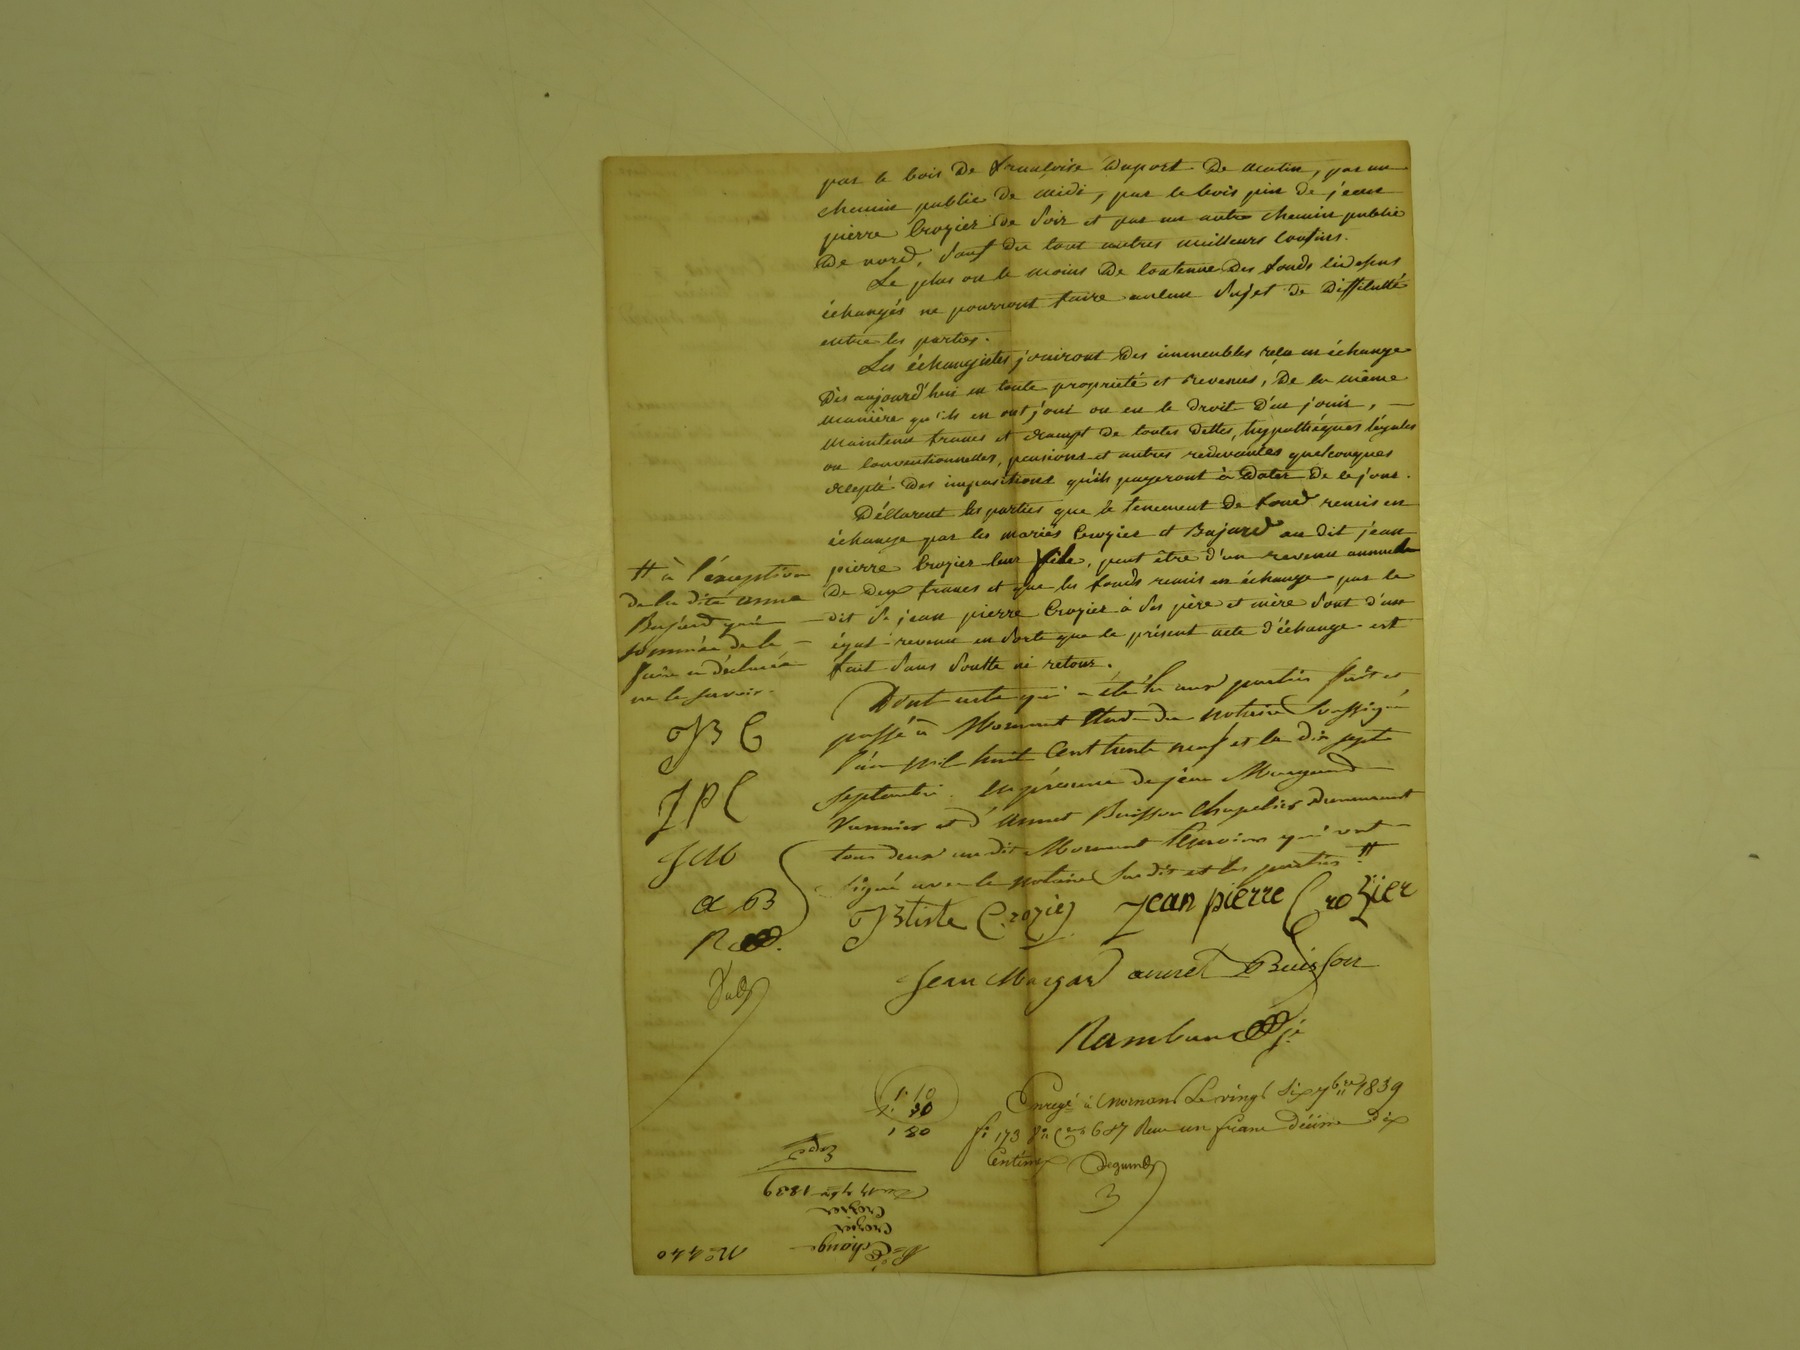 par le bois de françoise Duport de matin, par un
chemin public de midi, par le bois pin de jean
pierre Crozier de soir et par un autre chemin public
de nord, sauf du tout autres meilleurs confins.
Le plus ou le moins de contenue des fonds cidessus
échangés ne pourront faire aucun sujet de difficulté
entre les parties.
Les échangistes jouiront des immeubles reçu en échange
dès aujourd'hui en toute propriété et revenus, de la même
manière qu'ils en ont joui ou eu le droit d'en jouir, —
maintenu francs et exempt de toutes dettes, hypothéques légales
ou conventionnelles, pensions et autres redevances quelconques
excepté des impositions qu'ils payeront à dater de ce jour.
Déclarent les parties que le tenement de fond remis en
échange par les mariés Crozier et Bujard au dit jean
pierre Crozier leur fils, peut être d'un revenu annuel
de deux francs et que les fonds remis en échange par le
dit Sr jean pierre Crozier à ses père et mère sont d'un
égal revenu en sorte que le présent acte d'échange est
fait sans soulte ni retour.
Dont acte qui a été lu aux parties fait et
passé à Mornant étude du notaire soussigné
l'an mil huit cent trente neuf et le dix sept
septembre. en présence de jean
Vannier et d'annet Buisson chapelier demeurant
tous deux au dit Mornant témoins qui ont
signé avec le notaire susdit et les parties #
# à l'éxception
de la dite anne
Bujard qui
sommée de le
faire a déclaré
ne le savoir.
JB C
JPC
JM
a B
JBtiste Crozier jean pierre Crozier
Jean annet Buisson
Enregé à Mornant Le vingt six 7bre 1839
fo 173 Ro Ces 6 et 7 Reçu un franc décime dix
Centimes
1. 10
1 20
No 440
Echange
Crozier
Crozier
Du 17 7bre 1839